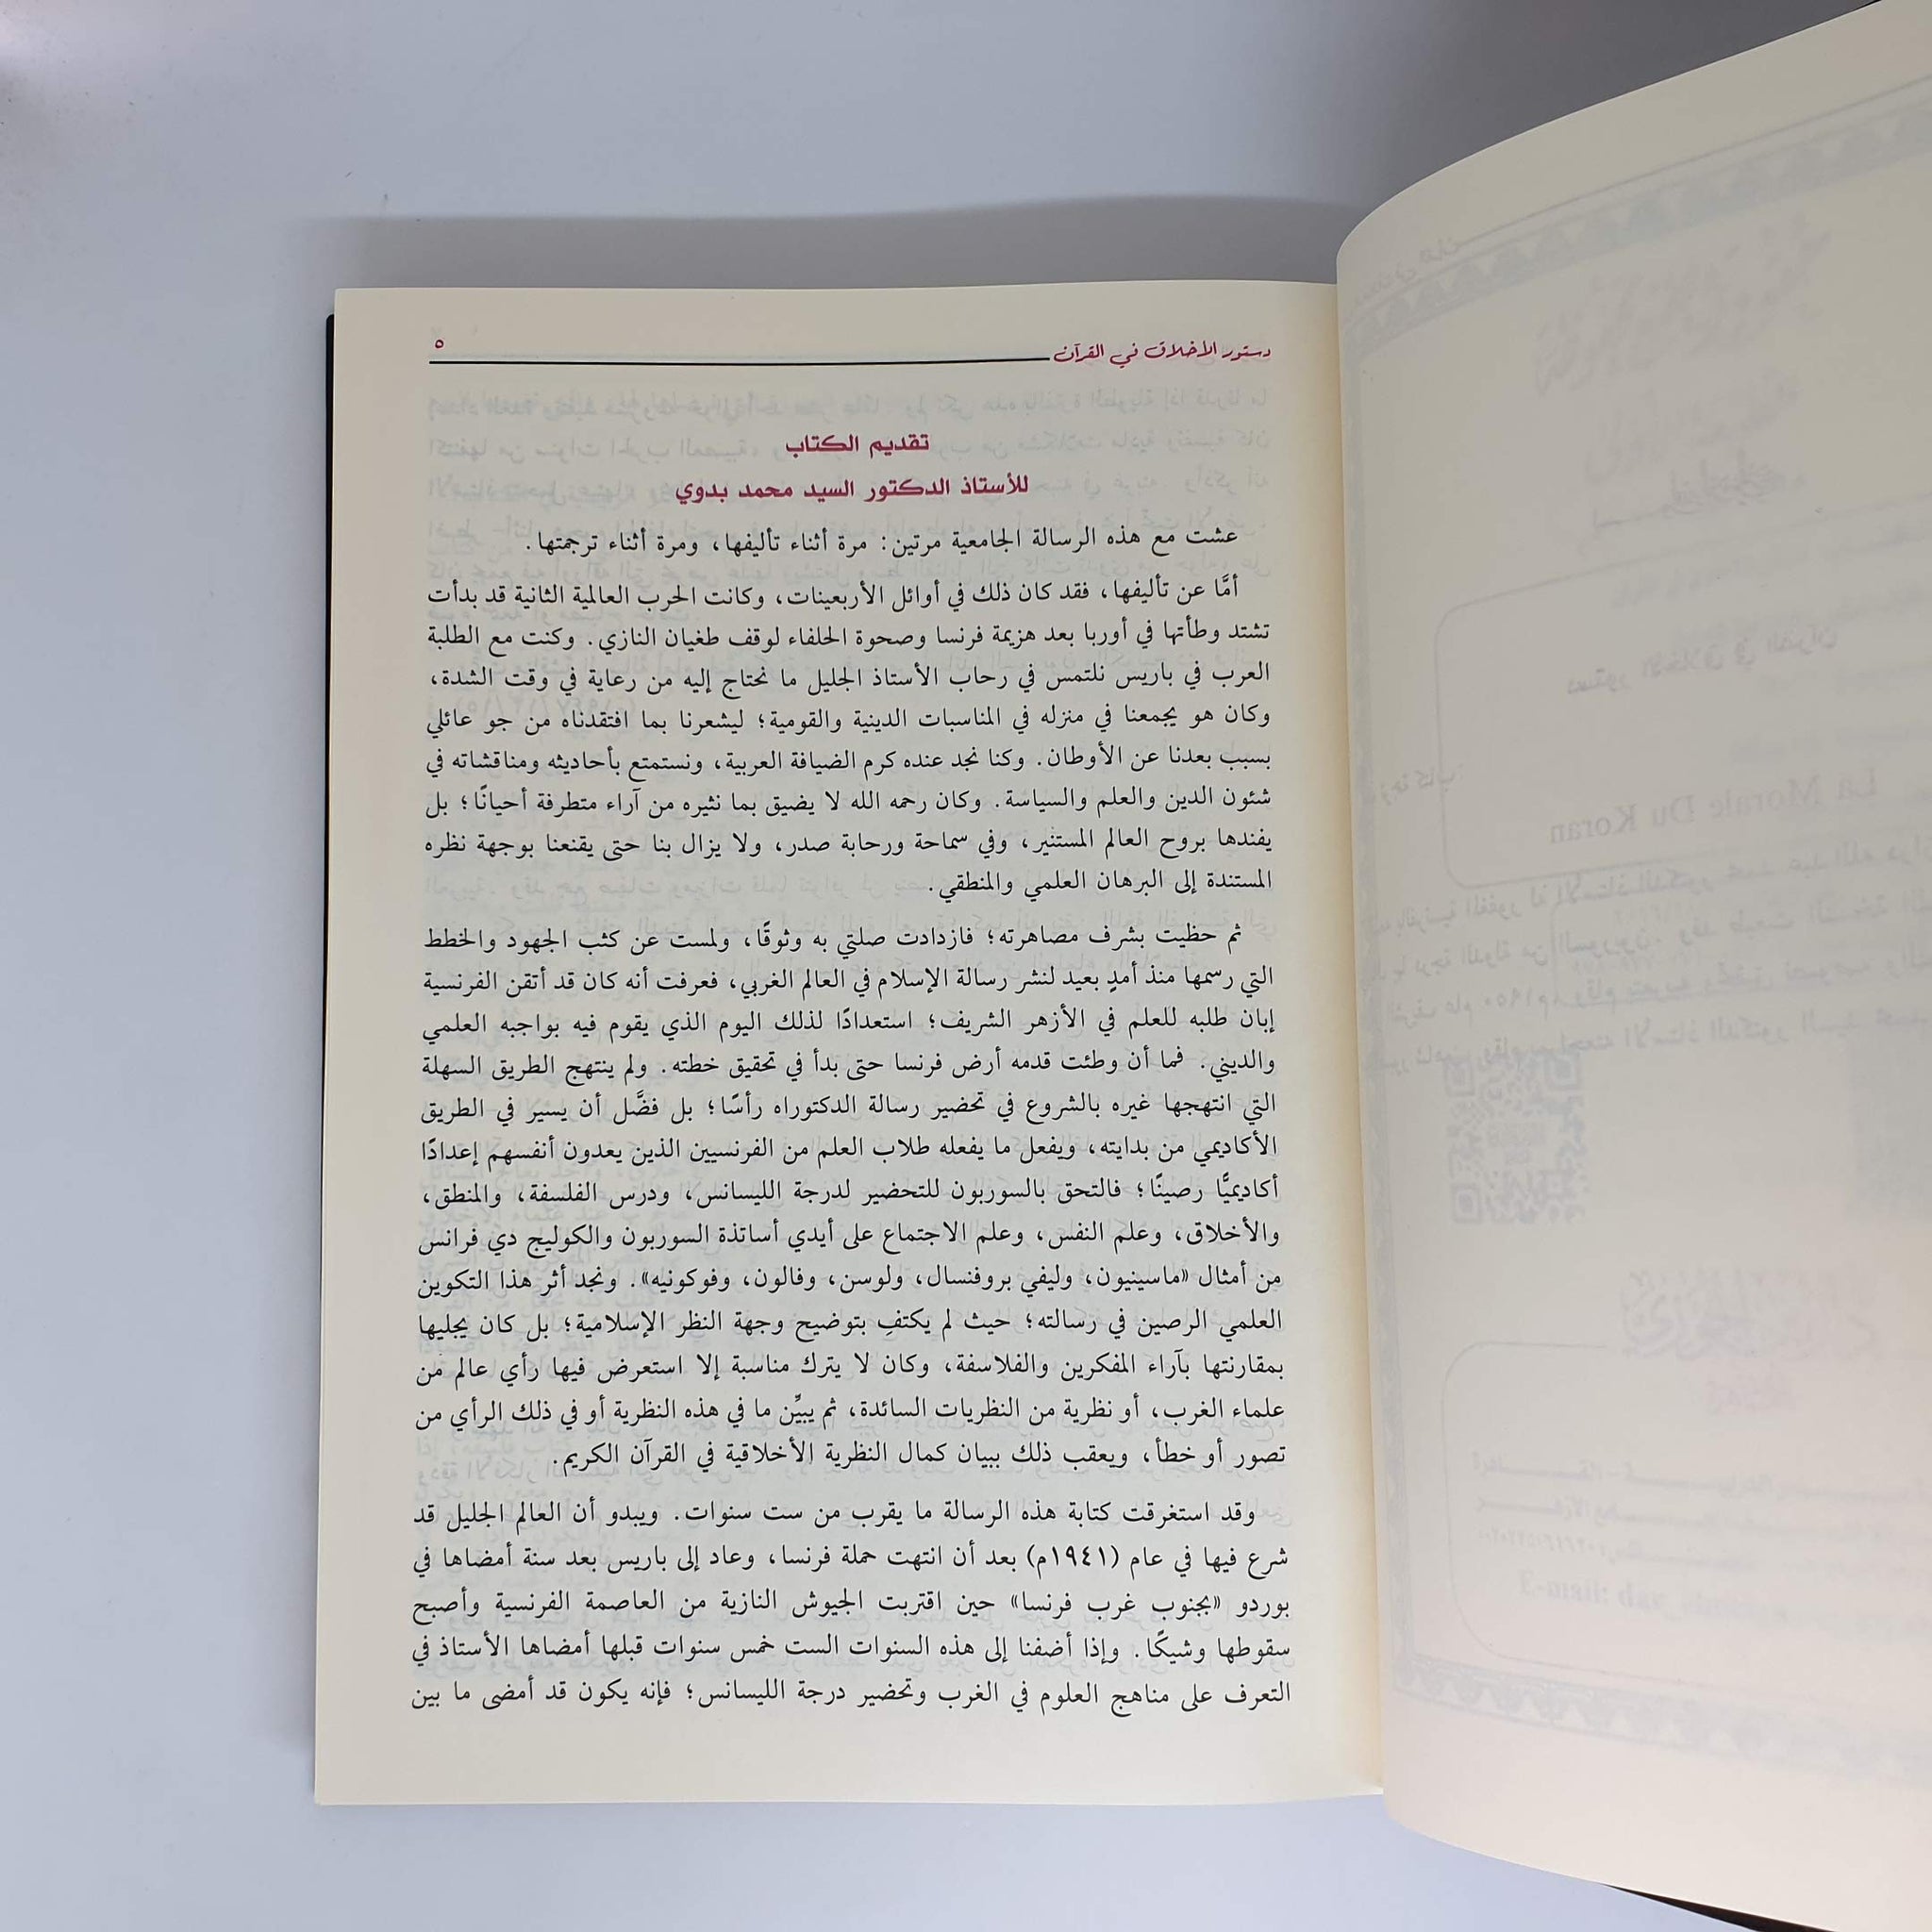 دستور الأخلاق في القرآن
٥
تقديم الكتاب
للأستاذ الدكتور السيد محمد بدوي
عشت مع هذه الرسالة الجامعية مرتين: مرة أثناء تأليفها، ومرة أثناء ترجمتها.
أمَّا عن تأليفها، فقد كان ذلك في أوائل الأربعينات، وكانت الحرب العالمية الثانية قد بدأت
تشتد وطأتها في أوربا بعد هزيمة فرنسا وصحوة الحلفاء لوقف طغيان النازي. وكنت مع الطلبة
العرب في باريس نلتمس في رحاب الأستاذ الجليل ما نحتاج إليه من رعاية في وقت الشدة،
وكان هو يجمعنا في منزله في المناسبات الدينية والقومية؛ ليشعرنا بما افتقدناه من جو عائلي
بسبب بعدنا عن الأوطان. وكنا نجد عنده كرم الضيافة العربية، ونستمتع بأحاديثه ومناقشاته في
شئون الدين والعلم والسياسة. وكان رحمه الله لا يضيق بما نثيره من آراء متطرفة أحيانًا؛ بل
يفندها بروح العالم المستنير، وفي سماحة ورحابة صدر، ولا يزال بنا حتى يقنعنا بوجهة نظره
المستندة إلى البرهان العلمي والمنطقي.
ثم حظيت بشرف مصاهرته؛ فازدادت صلتي به وثوقًا، ولمست عن كثب الجهود والخطط
التي رسمها منذ أمدٍ بعيد لنشر رسالة الإسلام في العالم الغربي، فعرفت أنه كان قد أتقن الفرنسية
إبان طلبه للعلم في الأزهر الشريف؛ استعدادًا لذلك اليوم الذي يقوم فيه بواجبه العلمي
والديني. فما أن وطئت قدمه أرض فرنسا حتى بدأ في تحقيق خطته. ولم ينتهج الطريق السهلة
التي انتهجها غيره بالشروع في تحضير رسالة الدكتوراه رأسًا؛ بل فضَّل أن يسير في الطريق
الأكاديمي من بدايته، ويفعل ما يفعله طلاب العلم من الفرنسيين الذين يعدون أنفسهم إعدادًا
أكاديميًّا رصينًا؛ فالتحق بالسوربون للتحضير لدرجة الليسانس، ودرس الفلسفة، والمنطق،
والأخلاق، وعلم النفس، وعلم الاجتماع على أيدي أساتذة السوربون والكوليج دي فرانس
مِن أمثال «ماسينيون، وليفي بروفنسال، ولوسن، وفالون، وفوكونيه». ونجد أثر هذا التكوين
العلمي الرصين في رسالته؛ حيث لم يكتفِ بتوضيح وجهة النظر الإسلامية؛ بل كان يجليها
بمقارنتها بآراء المفكرين والفلاسفة، وكان لا يترك مناسبة إلا استعرض فيها رأي عالم من
علماء الغرب، أو نظرية من النظريات السائدة، ثم يبيِّن ما في هذه النظرية أو في ذلك الرأي من
تصور أو خطأ، ويعقب ذلك ببيان كمال النظرية الأخلاقية في القرآن الكريم.
وقد استغرقت كتابة هذه الرسالة ما يقرب من ست سنوات. ويبدو أن العالم الجليل قد
شرع فيها في عام (١٩٤١م) بعد أن انتهت حملة فرنسا، وعاد إلى باريس بعد سنة أمضاها في
بوردو «بجنوب غرب فرنسا» حين اقتربت الجيوش النازية من العاصمة الفرنسية وأصبح
سقوطها وشيكًا. وإذا أضفنا إلى هذه السنوات الست خمس سنوات قبلها أمضاها الأستاذ في
التعرف على مناهج العلوم في الغرب وتحضير درجة الليسانس؛ فإنه يكون قد أمضى ما بين
La Morale Du Koran